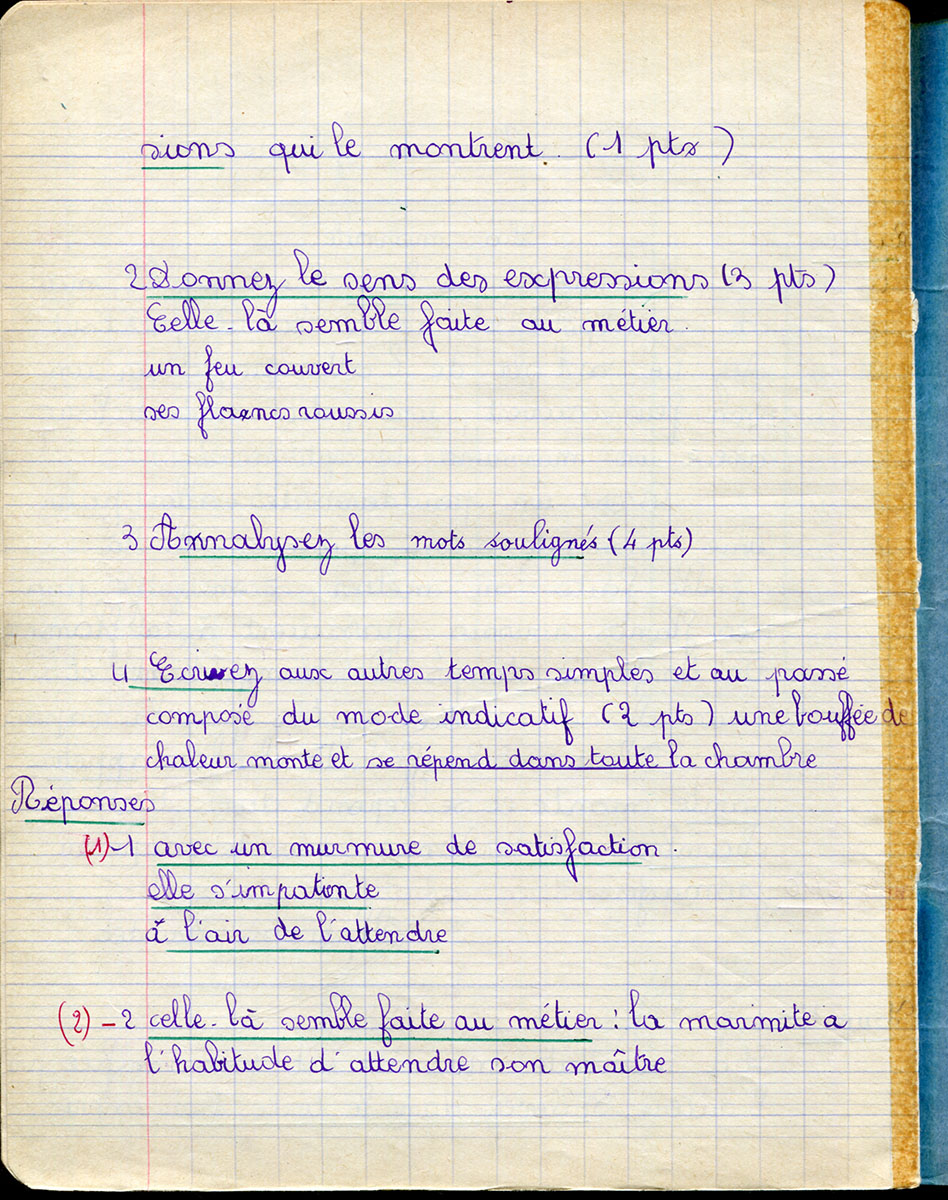 sions qui le montrent. (1 pts)
2 Donnez le sens des expressions (3 pts)
Celle-là semble faite au métier.
un feu couvert
ses flancs roussis
3 Annalysez les mots soulignés (4 pts)
4 Ecrivez aux autres temps simples et au passé
composé du mode indicatif (2 pts) une bouffée de
chaleur monte et se répend dans toute la chambre
Réponses
(1)-1 avec un murmure de satisfaction.
elle s'impatinte
à l'air de l'attendre
(2)-2 celle-là semble faite au métier : la marmite a
l'habitude d'attendre son maître